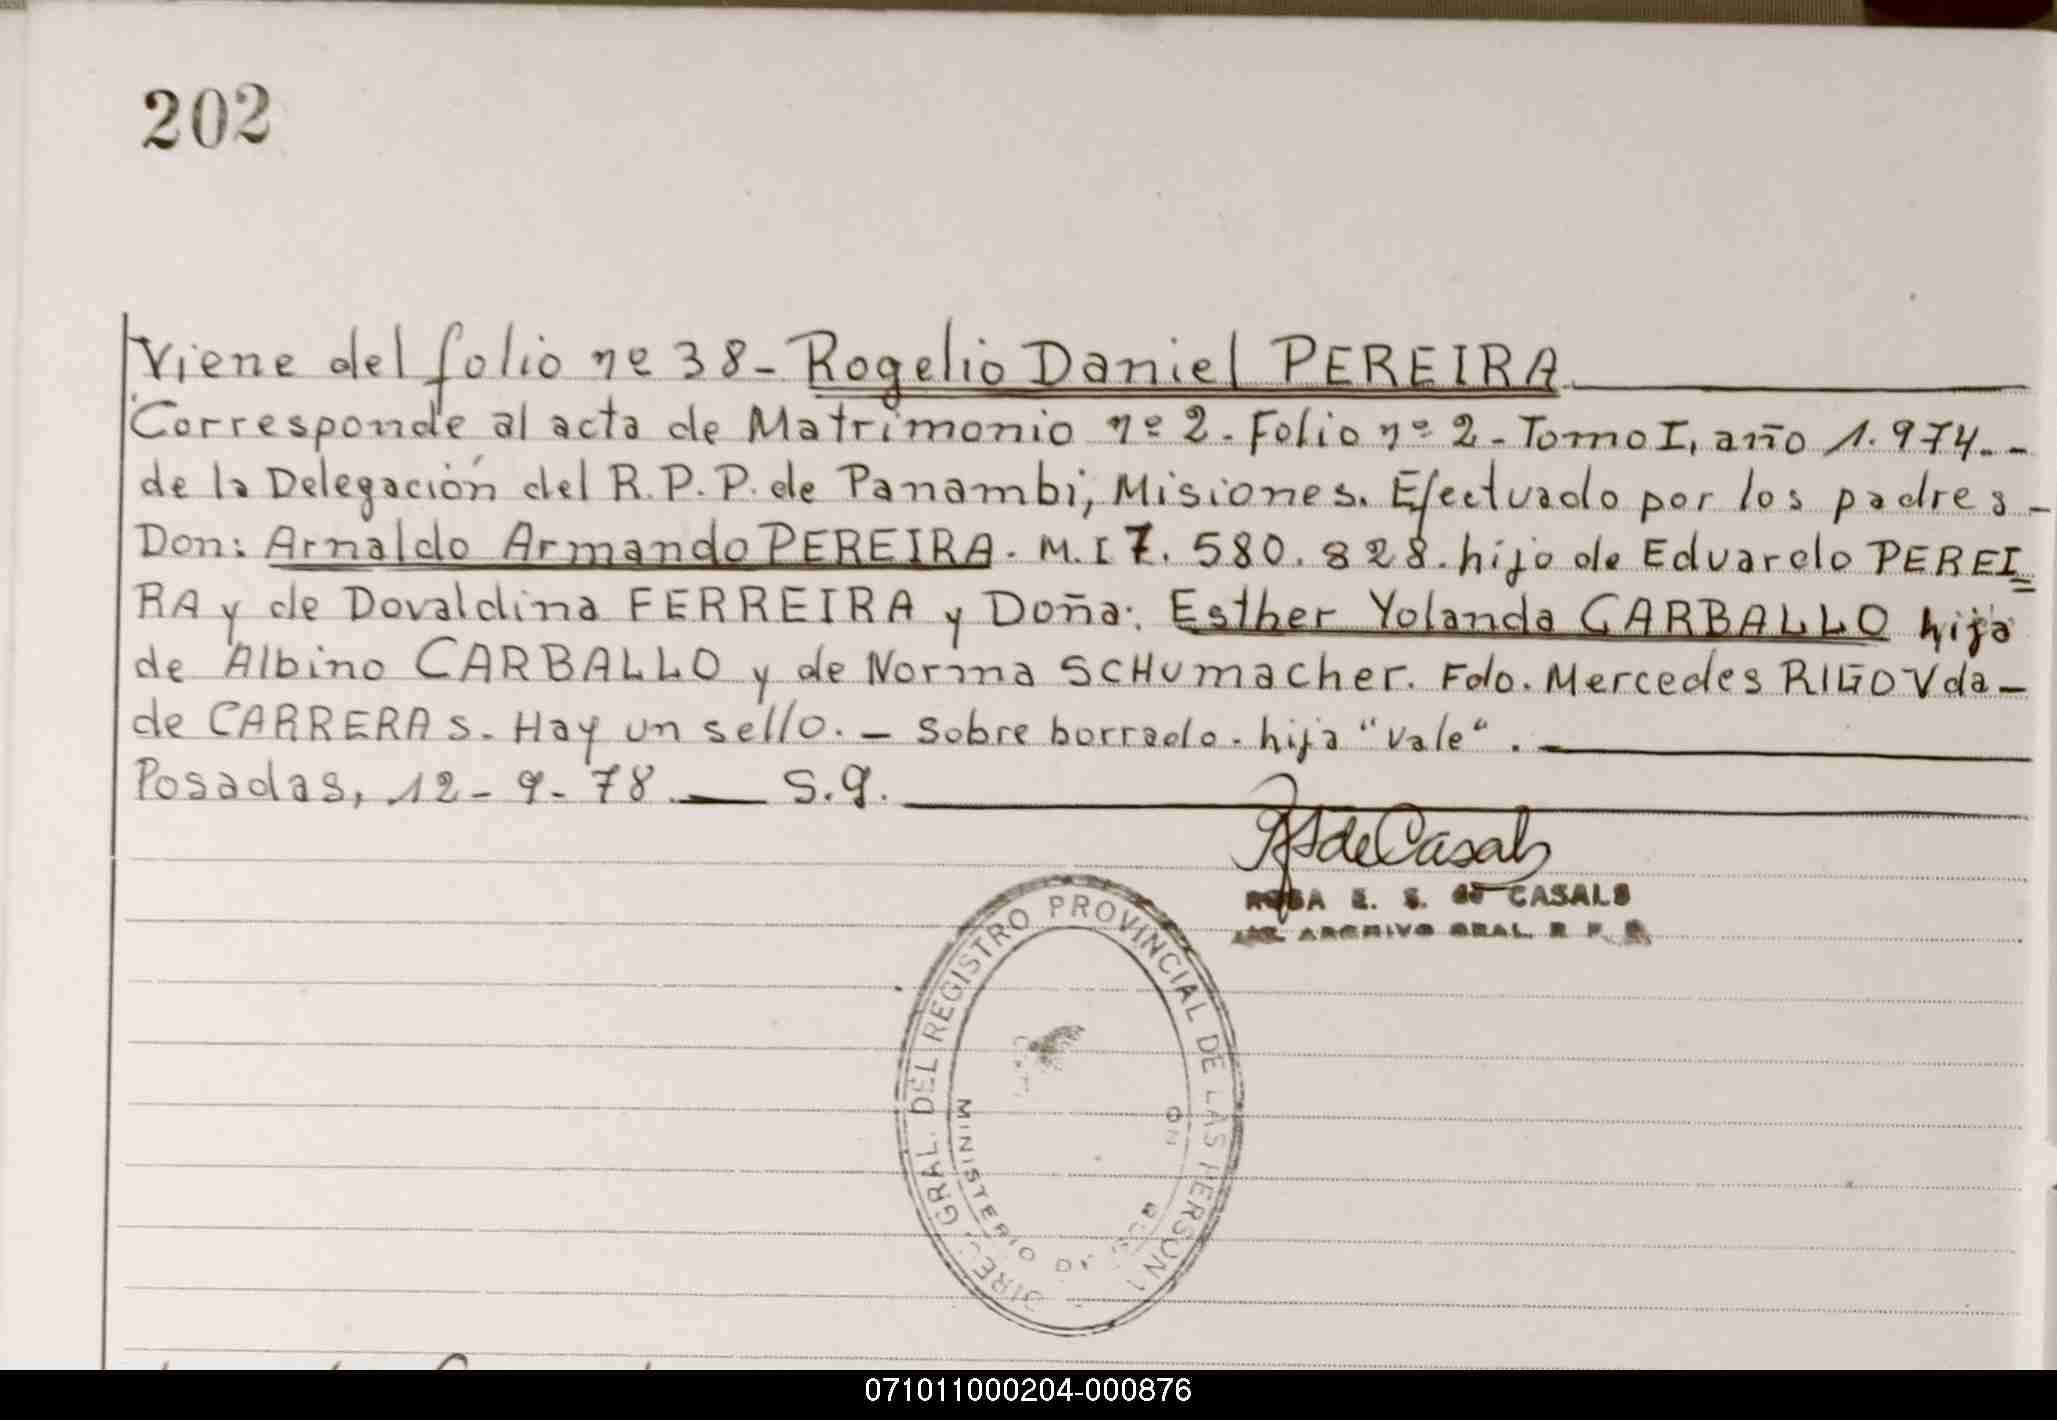 202
Viene del folio nº 38 - Rogelio Daniel PEREIRA
Corresponde al acta de Matrimonio nº 2 - Folio nº 2 - Tomo I, año 1.974.-
de la Delegación del R.P.P. de Panambi, Misiones. Efectuado por los padres -
Don: Arnaldo Armando PEREIRA. M.I 7.580.828. hijo de Eduardo PEREI
RA y de Dovaldina FERREIRA y Doña: Esther Yolanda CARBALLO hija
de Albino CARBALLO y de Norma SCHumacher. Fdo. Mercedes RIGO Vda -
de CARRERAS. Hay un sello. - Sobre borrado. hija "vale".
Posadas, 12-9-78. S.g.
de Casals
ROSA E. S. de CASALS
ARCHIVO GRAL. R. P. P.
DIREC. GRAL. DEL REGISTRO PROVINCIAL DE LAS PERSON
MINISTERIO
071011000204-000876